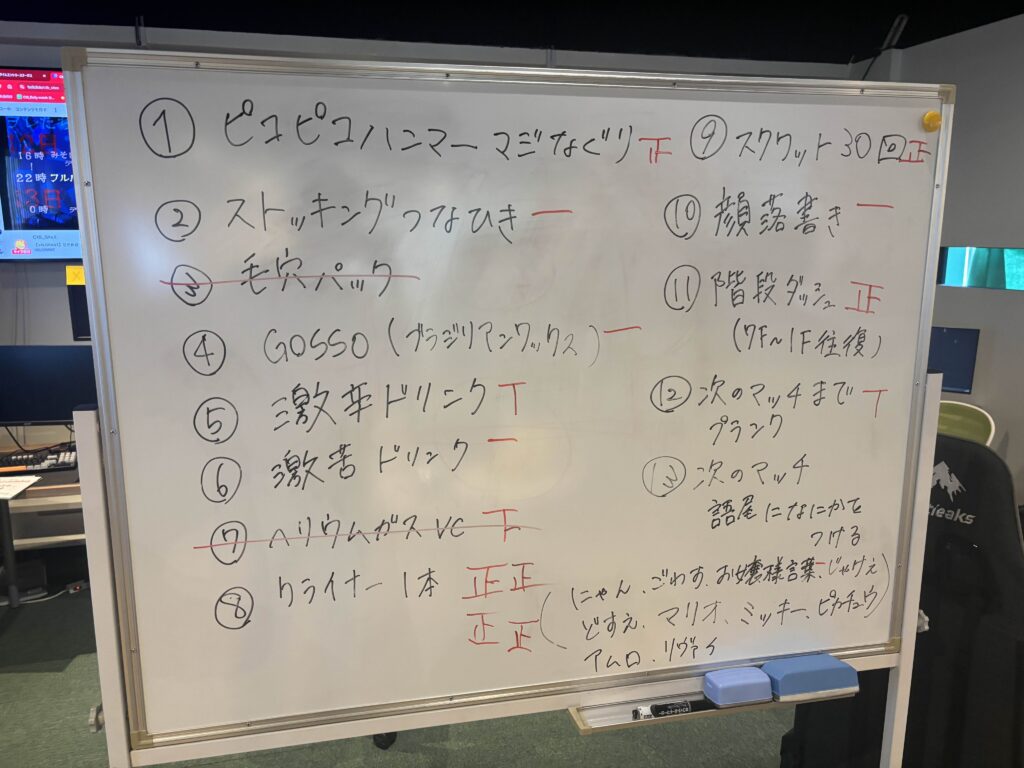 ① ピコピコハンマー マジなぐり 正
② ストッキングつなひき 一
③ 毛穴パック
④ GOSSO (ブラジリアンワックス) 一
⑤ 激辛ドリンク T
⑥ 激苦ドリンク 一
⑦ ヘリウムガス VC 下
⑧ クライナー 1本 正正
正正
⑨ スクワット30回 正
⑩ 顔落書き 一
⑪ 階段ダッシュ 正
(7F〜1F往復)
⑫ 次のマッチまで T
プランク
⑬ 次のマッチ
語尾になにかを
つける
(にゃん、ごわす、お嬢様言葉、じゃけぇ
どすえ、マリオ、ミッキー、ピカチュウ)
アムロ、リヴァイ
16時 みそ
22時 フルパ
0時
eaks